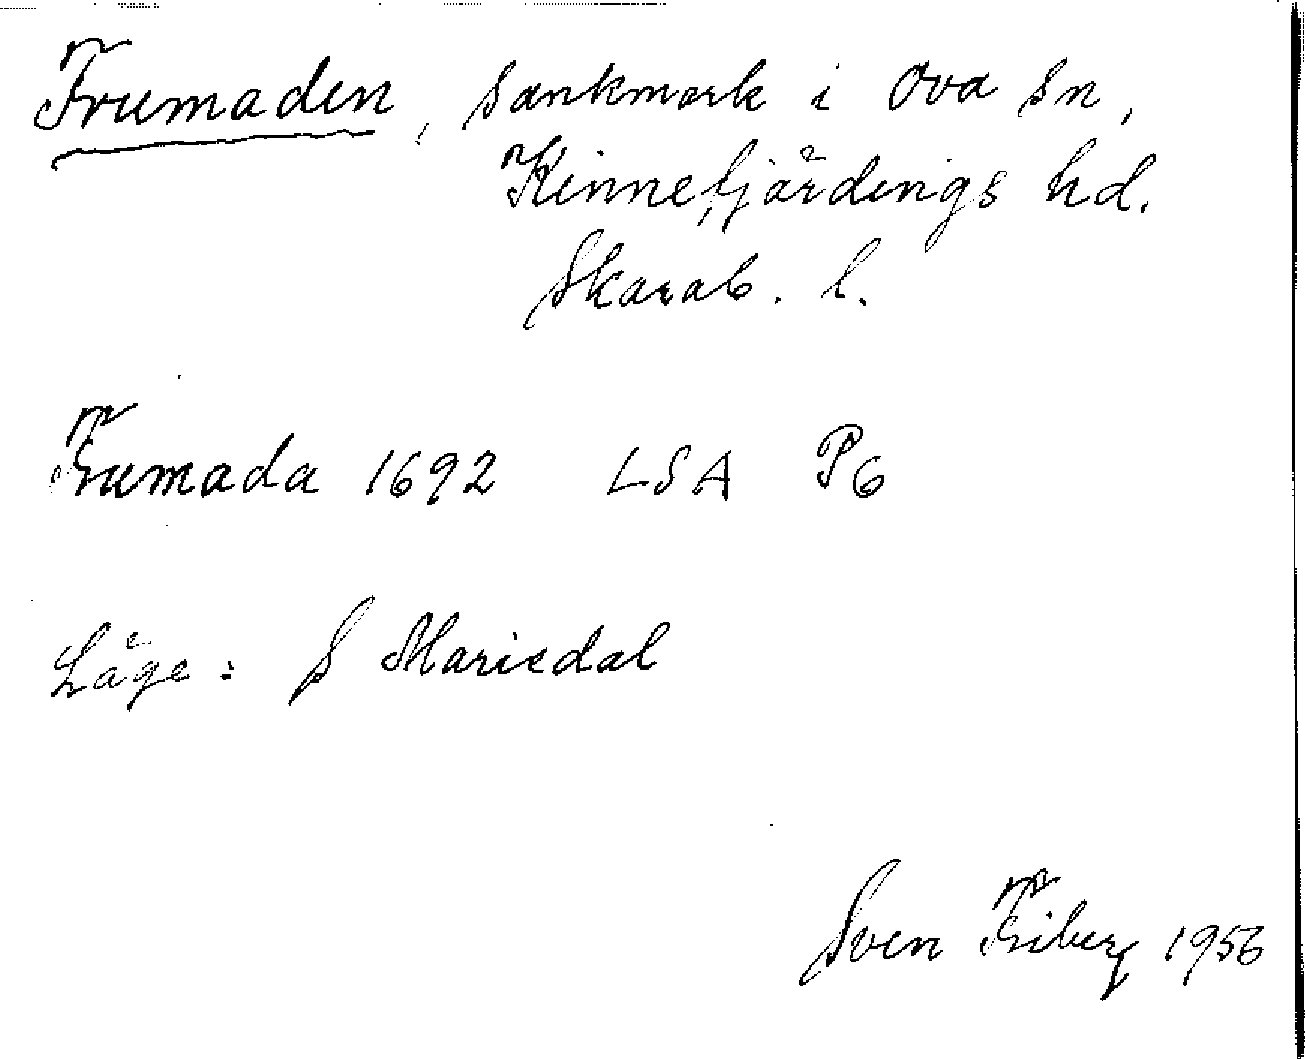 Frumaden, sankmark i Ova sn,
Kinnefjärdings hd.
Skarab. l.
Frumada 1692 LSA P6
Läge: S Mariedal
Sven Friberg 1956